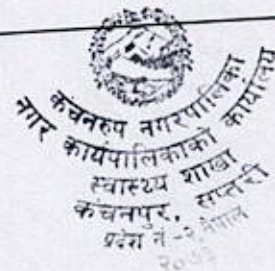 कंचनरुप नगरपालिका
नगर कार्यपालिकाको कार्यालय
स्वास्थ्य शाखा
कंचनपुर, सप्तरी
प्रदेश नं -२ नेपाल